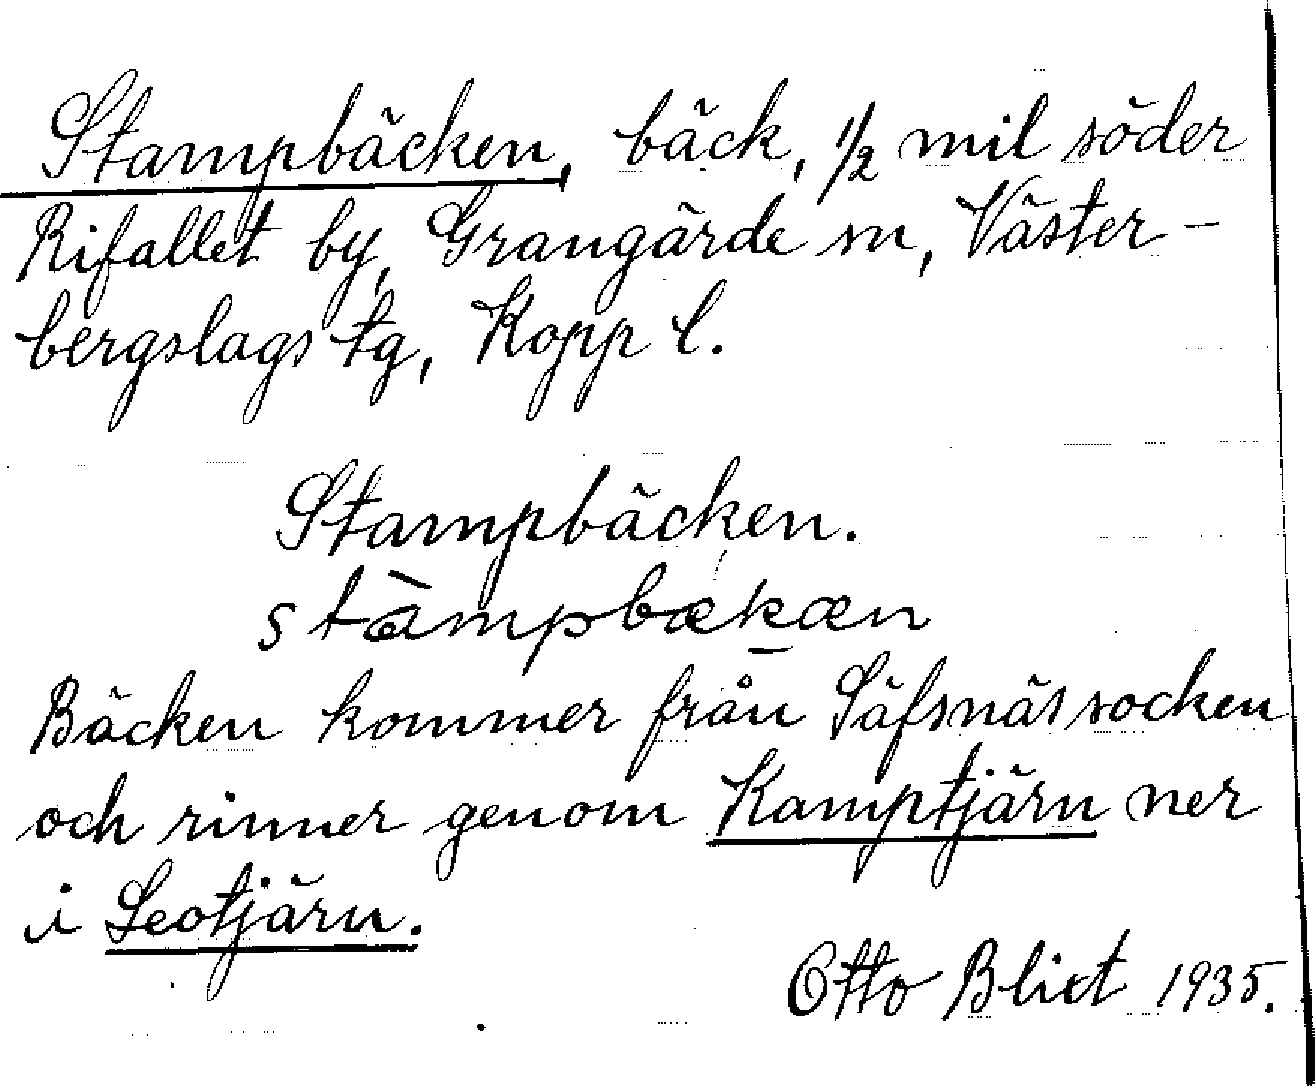 Stampbäcken, bäck, 1/2 mil söder
Rifallet by, Grangärde sn, Väster-
bergslags tg, Kopp l.
Stampbäcken.
stàmpbækæn
Bäcken kommer från Säfsnäs socken
och rinner genom Kamptjärn ner
i Leotjärn.
Otto Blixt 1935.